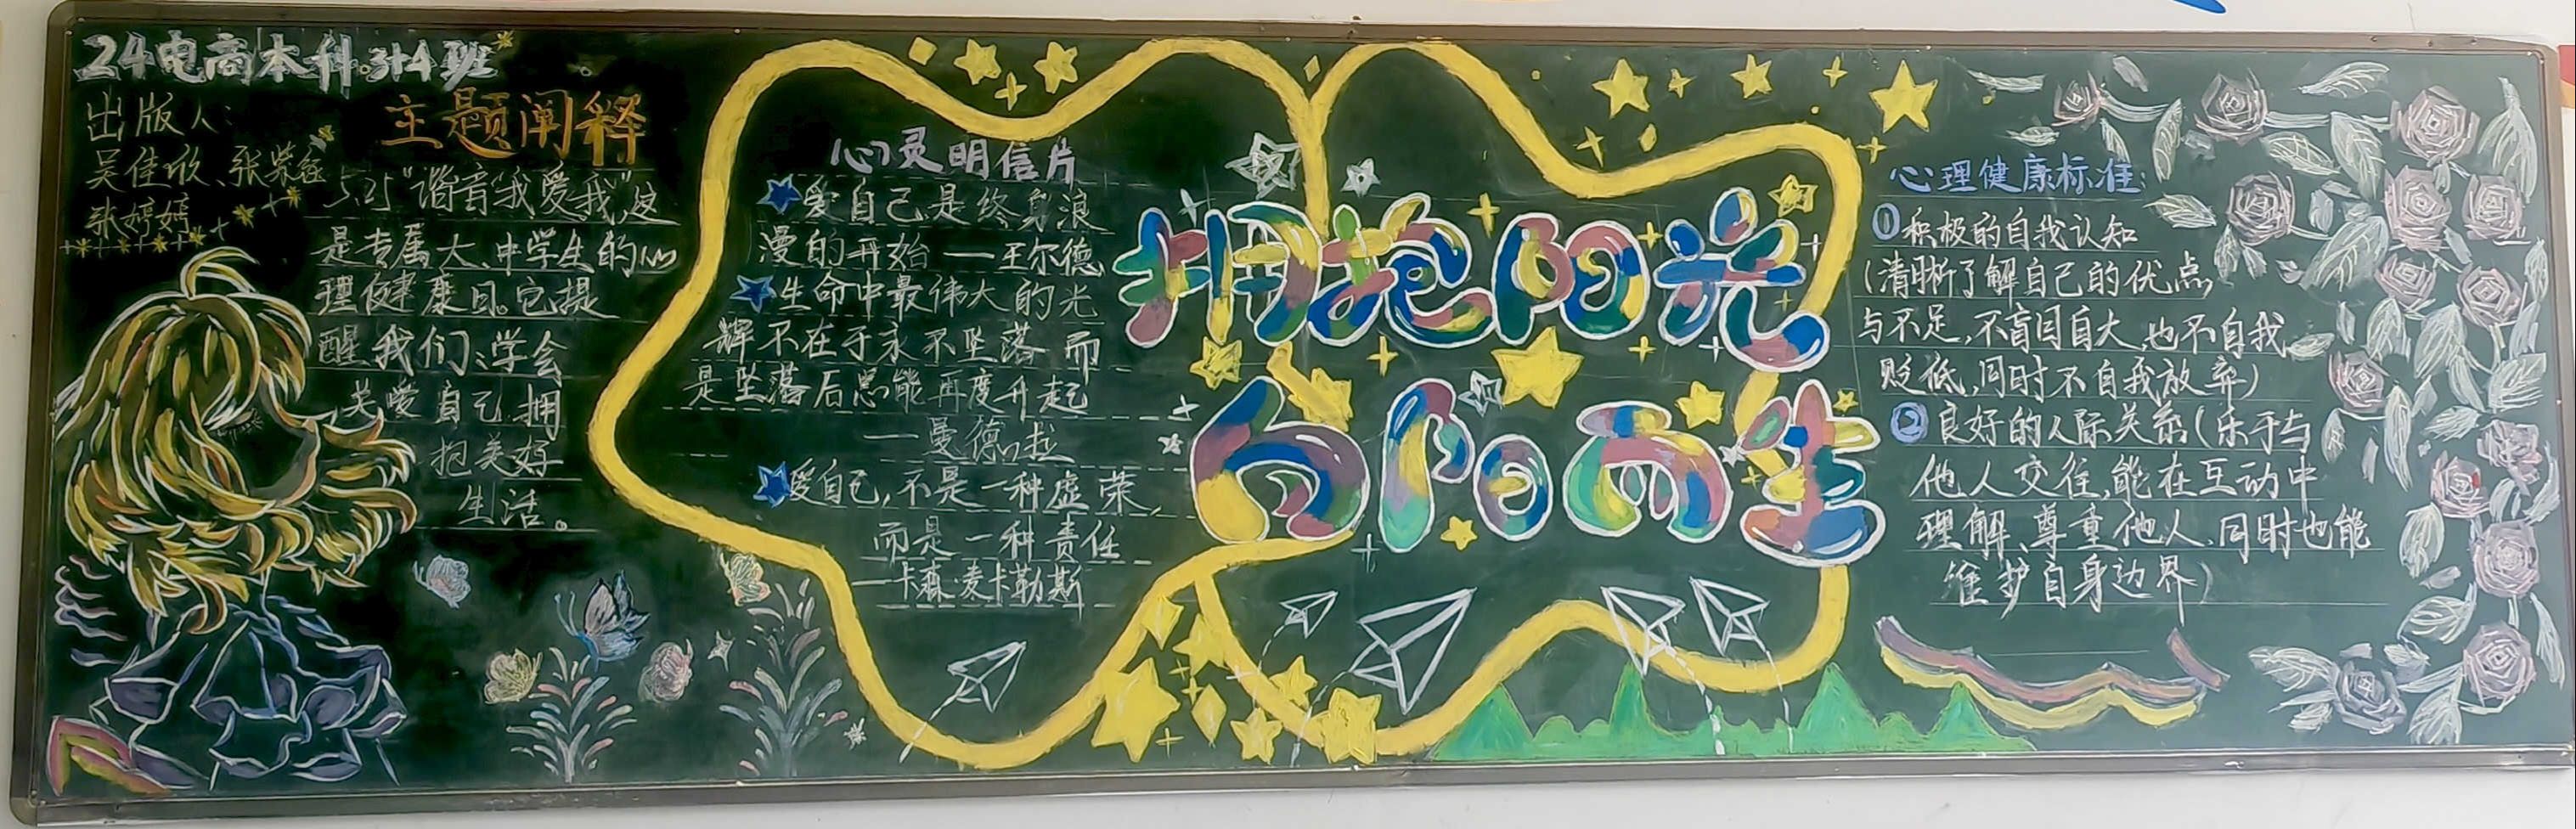 24电商本科3+4班
出版人:
吴佳欣、张紫
张婷婷
主题阐释
5.25"谐音"我爱我",这
是专属大中学生的心
理健康日。它提
醒我们:学会
关爱自己,拥
抱美好
生活。
心灵明信片
爱自己是终身浪
漫的开始 —王尔德
生命中最伟大的光
辉不在于永不坠落 而
是坠落后总能再度升起
——曼德拉
爱自己,不是一种虚荣,
而是一种责任
—卡森·麦卡勒斯
拥抱阳光
向阳而生
心理健康标准:
①积极的自我认知
(清晰了解自己的优点,
与不足,不盲目自大,也不自我
贬低,同时不自我放弃)
②良好的人际关系(乐于与
他人交往,能在互动中
理解、尊重他人、同时也能
维护自身边界)